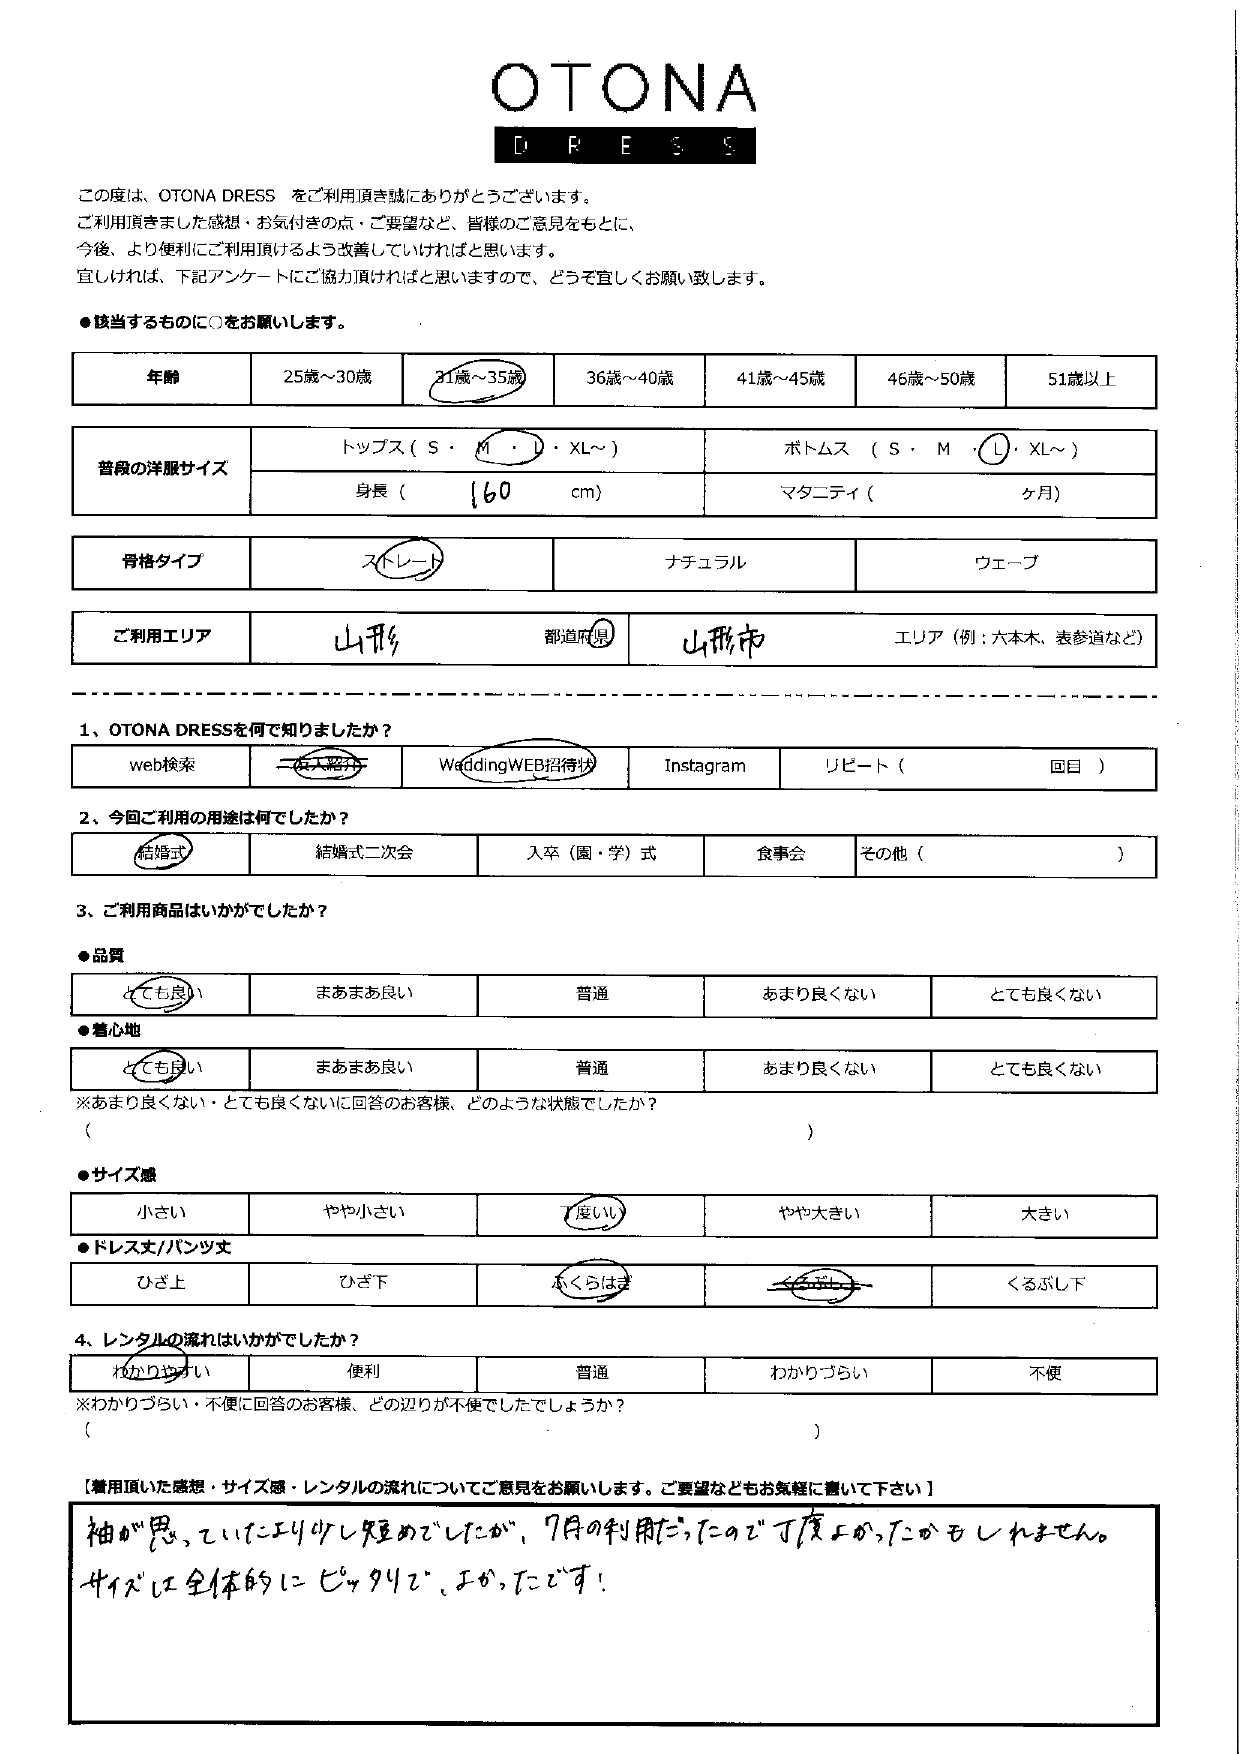 OTONA
DRESS
この度は、OTONA DRESS　をご利用頂き誠にありがとうございます。
ご利用頂きました感想・お気付きの点・ご要望など、皆様のご意見をもとに、
今後、より便利にご利用頂けるよう改善していければと思います。
宜しければ、下記アンケートにご協力頂ければと思いますので、どうぞ宜しくお願い致します。
●該当するものに○をお願いします。
年齢 25歳～30歳 31歳～35歳 36歳～40歳 41歳～45歳 46歳～50歳 51歳以上
普段の洋服サイズ トップス ( S ・ M ・ L ・ XL～ ) ボトムス ( S ・ M ・ L ・ XL～ )
身長 ( 160 cm) マタニティ ( ヶ月)
骨格タイプ ストレート ナチュラル ウェーブ
ご利用エリア 山形 都道府県 山形市 エリア（例：六本木、表参道など）
1、OTONA DRESSを何で知りましたか？
web検索 友人紹介 WeddingWEB招待状 Instagram リピート ( 回目 )
2、今回ご利用の用途は何でしたか？
結婚式 結婚式二次会 入卒（園・学）式 食事会 その他 ( )
3、ご利用商品はいかがでしたか？
●品質
とても良い まあまあ良い 普通 あまり良くない とても良くない
●着心地
とても良い まあまあ良い 普通 あまり良くない とても良くない
※あまり良くない・とても良くないに回答のお客様、どのような状態でしたか？
( )
●サイズ感
小さい やや小さい 丁度いい やや大きい 大きい
●ドレス丈/パンツ丈
ひざ上 ひざ下 ふくらはぎ くるぶし上 くるぶし下
4、レンタルの流れはいかがでしたか？
わかりやすい 便利 普通 わかりづらい 不便
※わかりづらい・不便に回答のお客様、どの辺りが不便でしたでしょうか？
( )
【着用頂いた感想・サイズ感・レンタルの流れについてご意見をお願いします。ご要望などもお気軽に書いて下さい】
袖が思っていたより少し短めでしたが、7月の利用だったので丁度よかったかもしれません。
サイズは全体的にピッタリで、よかったです！